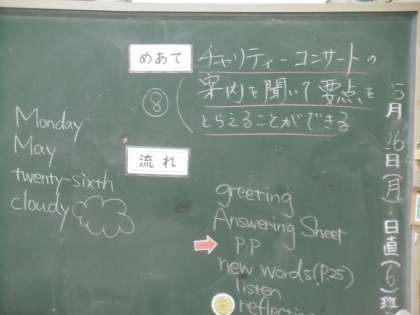 めあて
チャリティーコンサートの
案内を聞いて要点を
とらえることができる
⑧
Monday
May
twenty-sixth
cloudy
流れ
greeting
Answering Sheet
P.P
new words(P.25)
listen
reflection
5月26日(月)日直(6)班